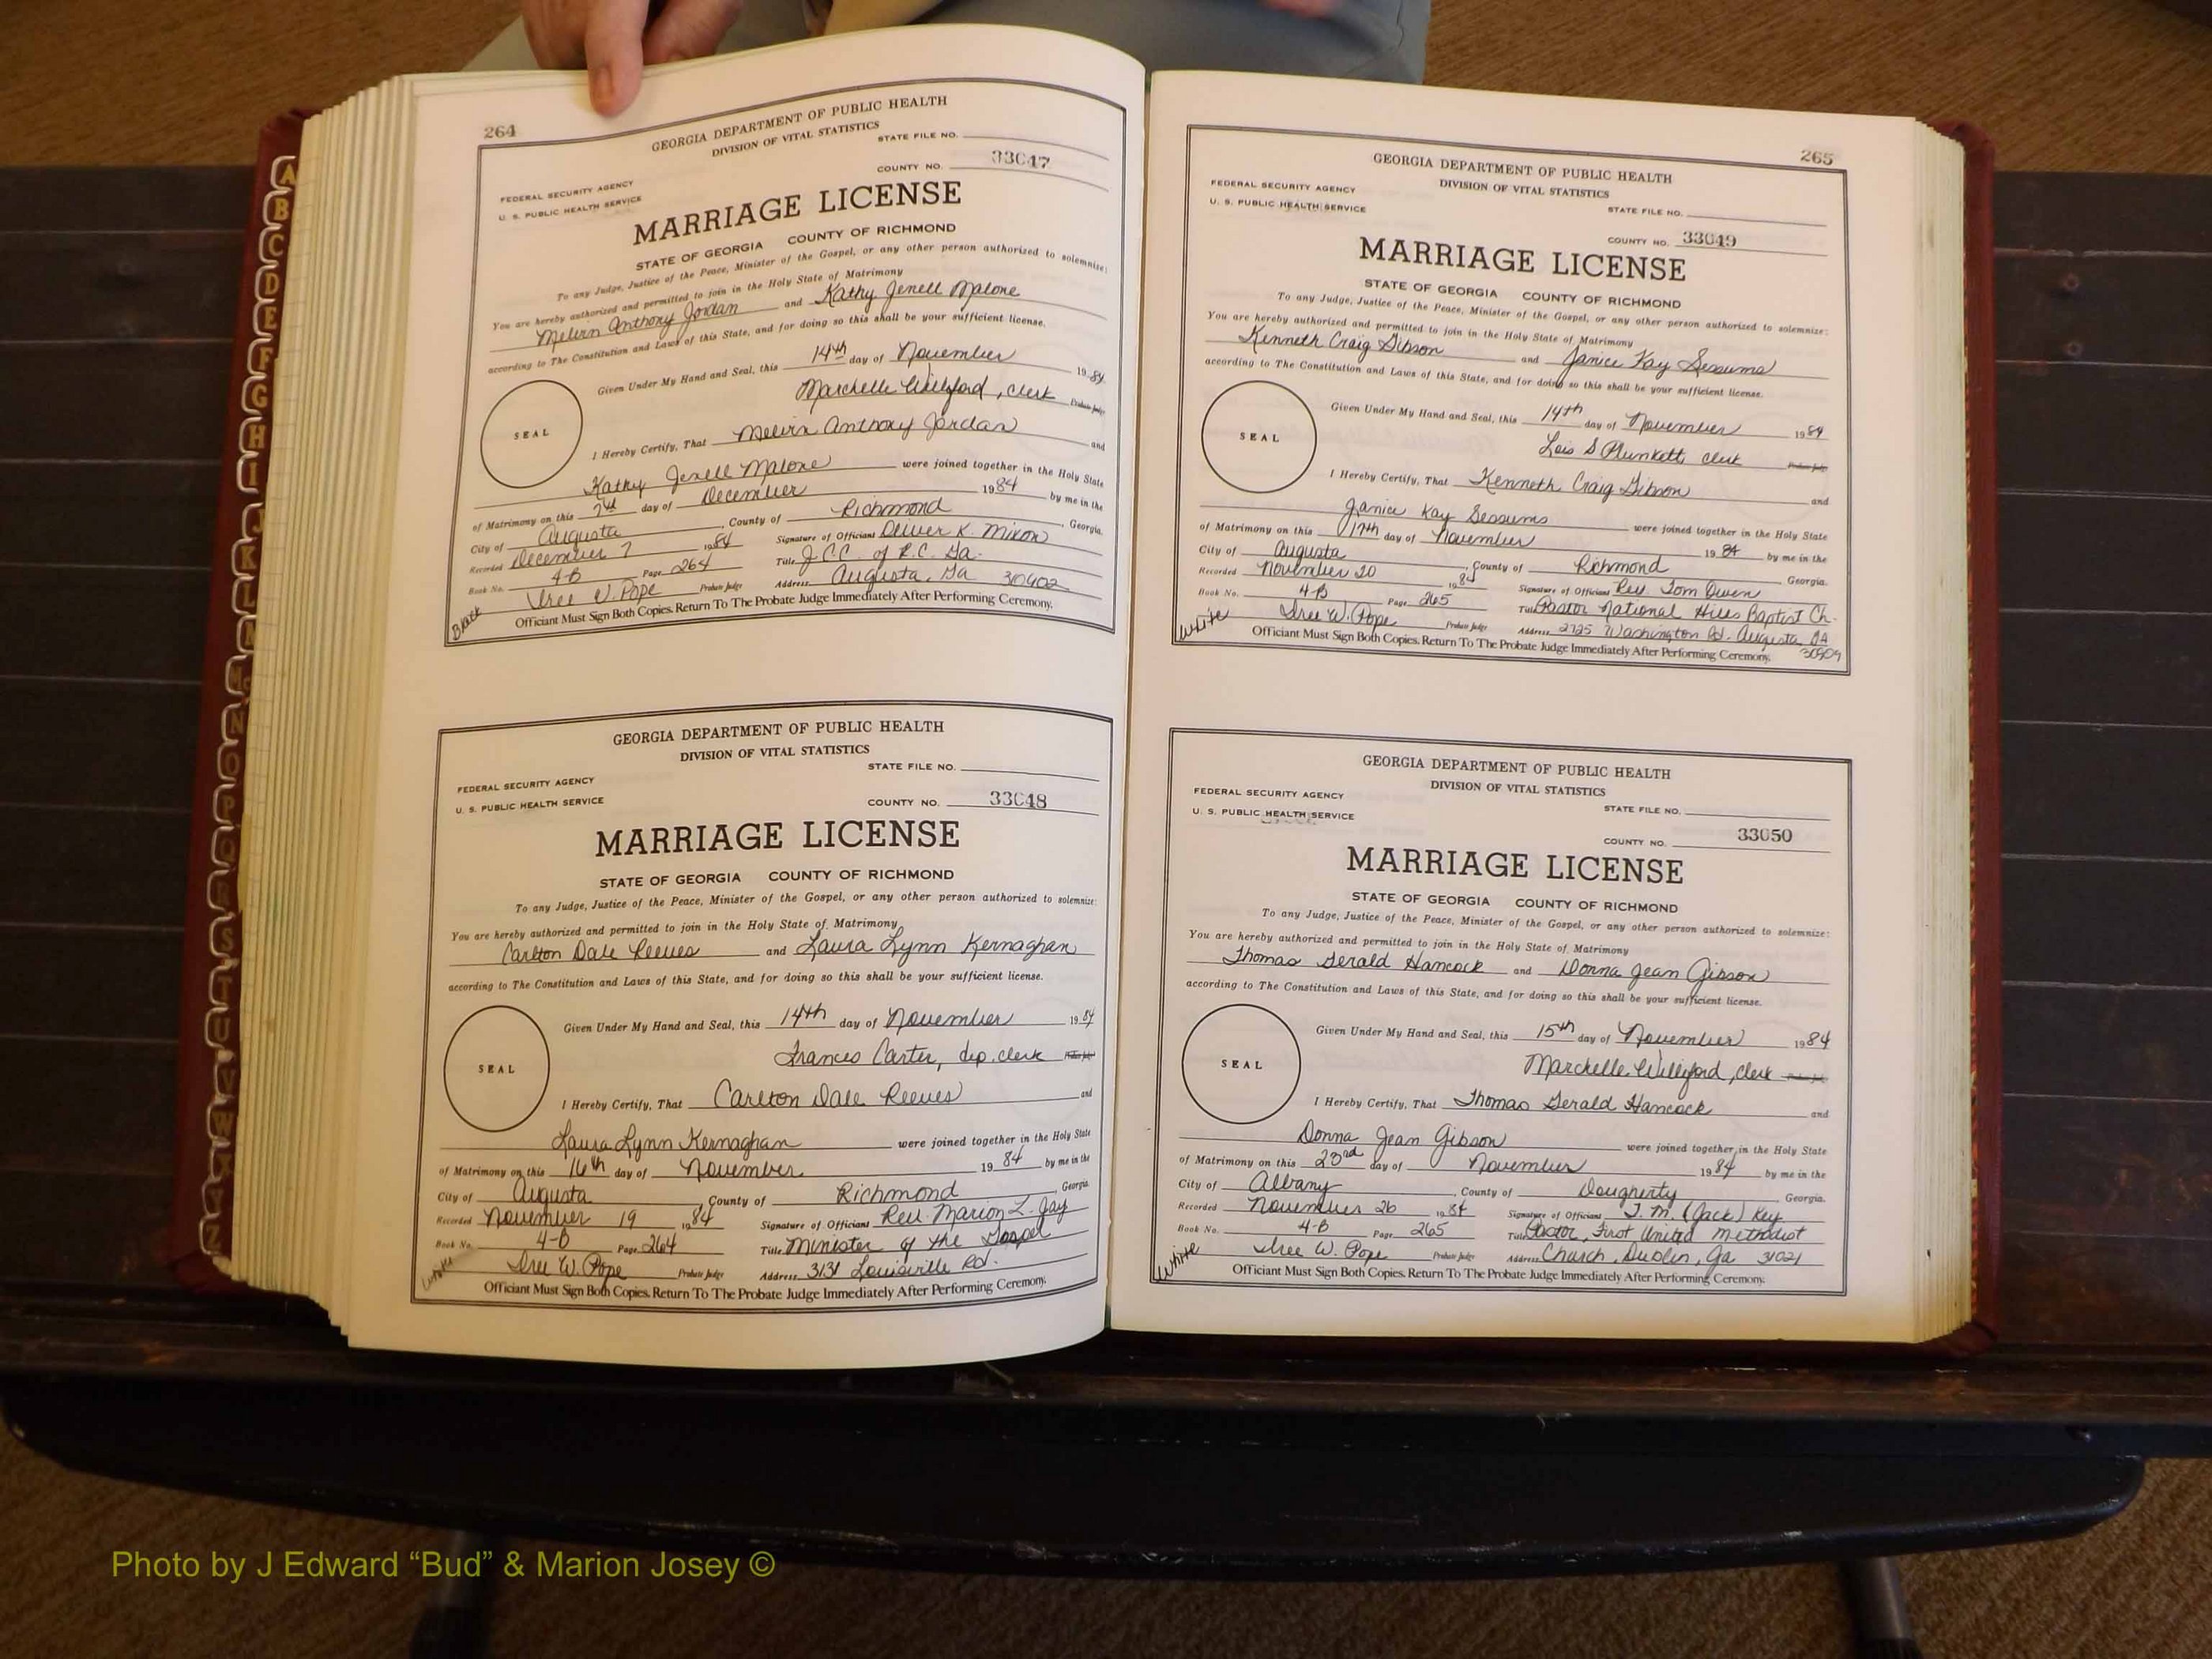 264
GEORGIA DEPARTMENT OF PUBLIC HEALTH
DIVISION OF VITAL STATISTICS
STATE FILE NO.
COUNTY NO. 33047
FEDERAL SECURITY AGENCY
U. S. PUBLIC HEALTH SERVICE
MARRIAGE LICENSE
STATE OF GEORGIA COUNTY OF RICHMOND
To any Judge, Justice of the Peace, Minister of the Gospel, or any other person authorized to solemnize:
You are hereby authorized and permitted to join in the Holy State of Matrimony
Melvin Anthony Jordan and Kathy Jenell Malone
according to The Constitution and Laws of this State, and for doing so this shall be your sufficient license.
Given Under My Hand and Seal, this 14th day of November 1984
Marchelle Williford, clerk Probate Judge
SEAL
I Hereby Certify, That Melvin Anthony Jordan and
Kathy Jenell Malone were joined together in the Holy State
of Matrimony on this day of December 1984 by me in the
City of Augusta, County of Richmond, Georgia.
Recorded December 7 1984 Signature of Officiant Oliver K. Mixon
Book No. 4-B Page 264 Title J.C.C. of R.C. Ga.
Iree W. Pope Probate Judge Address Augusta, Ga
Black
Officiant Must Sign Both Copies. Return To The Probate Judge Immediately After Performing Ceremony.
GEORGIA DEPARTMENT OF PUBLIC HEALTH
DIVISION OF VITAL STATISTICS
STATE FILE NO.
FEDERAL SECURITY AGENCY
U. S. PUBLIC HEALTH SERVICE
COUNTY NO. 33048
MARRIAGE LICENSE
STATE OF GEORGIA COUNTY OF RICHMOND
To any Judge, Justice of the Peace, Minister of the Gospel, or any other person authorized to solemnize:
You are hereby authorized and permitted to join in the Holy State of Matrimony
Carlton Dale Reeves and Laura Lynn Kernaghan
according to The Constitution and Laws of this State, and for doing so this shall be your sufficient license.
Given Under My Hand and Seal, this 14th day of November 1984
Frances Carter, dep. clerk Probate Judge
SEAL
I Hereby Certify, That Carlton Dale Reeves and
Laura Lynn Kernaghan were joined together in the Holy State
of Matrimony on this 16th day of November 1984 by me in the
City of Augusta, County of Richmond, Georgia.
Recorded November 19 1984 Signature of Officiant Rev. Marion L. Jay
Book No. 4-B Page 264 Title Minister of the Gospel
Iree W. Pope Probate Judge Address 3131 Louisville Rd.
White
Officiant Must Sign Both Copies. Return To The Probate Judge Immediately After Performing Ceremony.
265
GEORGIA DEPARTMENT OF PUBLIC HEALTH
DIVISION OF VITAL STATISTICS
FEDERAL SECURITY AGENCY
U. S. PUBLIC HEALTH SERVICE
STATE FILE NO.
COUNTY NO. 33049
MARRIAGE LICENSE
STATE OF GEORGIA COUNTY OF RICHMOND
To any Judge, Justice of the Peace, Minister of the Gospel, or any other person authorized to solemnize:
You are hereby authorized and permitted to join in the Holy State of Matrimony
Kenneth Craig Gibson and Janice Kay Sessums
according to The Constitution and Laws of this State, and for doing so this shall be your sufficient license.
Given Under My Hand and Seal, this 14th day of November 1984
Lois S Plunkett, clerk Probate Judge
SEAL
I Hereby Certify, That Kenneth Craig Gibson and
Janice Kay Sessums were joined together in the Holy State
of Matrimony on this 17th day of November 1984 by me in the
City of Augusta, County of Richmond, Georgia.
Recorded November 20 1984 Signature of Officiant Rev. Tom Owen
Book No. 4-B Page 265 Title Pastor National Hills Baptist Ch.
Iree W. Pope Probate Judge Address 2725 Washington Rd. Augusta, GA
30909
White
Officiant Must Sign Both Copies. Return To The Probate Judge Immediately After Performing Ceremony.
GEORGIA DEPARTMENT OF PUBLIC HEALTH
DIVISION OF VITAL STATISTICS
FEDERAL SECURITY AGENCY
U. S. PUBLIC HEALTH SERVICE
STATE FILE NO.
COUNTY NO. 33050
MARRIAGE LICENSE
STATE OF GEORGIA COUNTY OF RICHMOND
To any Judge, Justice of the Peace, Minister of the Gospel, or any other person authorized to solemnize:
You are hereby authorized and permitted to join in the Holy State of Matrimony
Thomas Gerald Hancock and Donna Jean Gibson
according to The Constitution and Laws of this State, and for doing so this shall be your sufficient license.
Given Under My Hand and Seal, this 15th day of November 1984
Marchelle Williford, clerk
SEAL
I Hereby Certify, That Thomas Gerald Hancock and
Donna Jean Gibson were joined together in the Holy State
of Matrimony on this 23rd day of November 1984 by me in the
City of Albany, County of Dougherty Georgia.
Recorded November 26 1984 Signature of Officiant J. M. (Jack) Key
Book No. 4-B Page 265 Title Pastor, First United Methodist
Iree W. Pope Probate Judge Address Church, Dublin, Ga 31021
White
Officiant Must Sign Both Copies. Return To The Probate Judge Immediately After Performing Ceremony.
A
B
C
D
E
F
G
H
I
J
K
L
Mc
N
O
P
Q
R
S
T
U
V
W
Z
Photo by J Edward “Bud” & Marion Josey ©